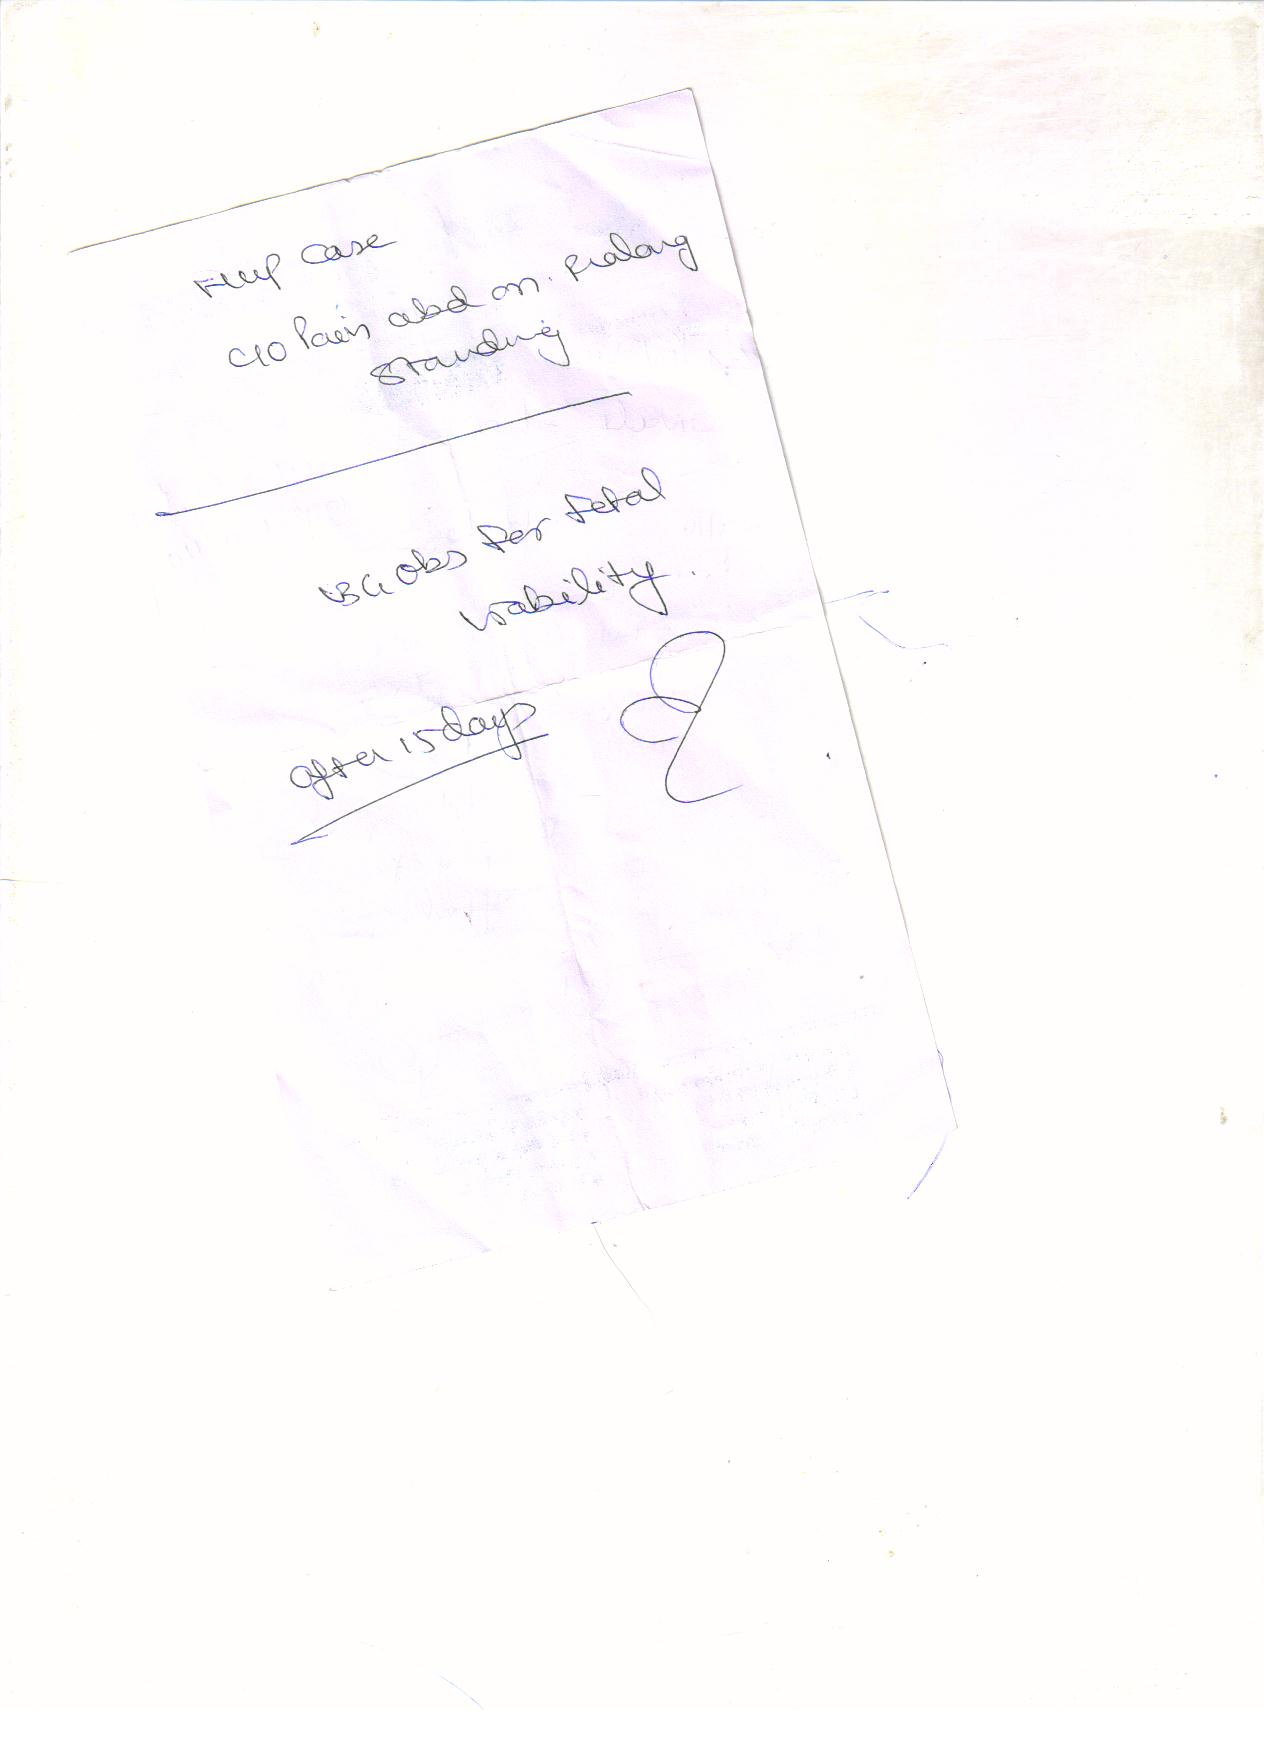 F/up case
C/O Pain abd on. Prolong
standing
USG obs For Fetal
viability.
after 15 days